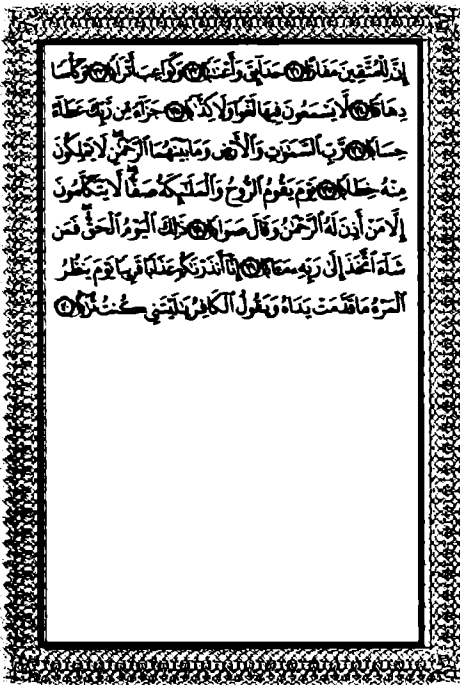 إِنَّ لِلْمُتَّقِينَ مَفَازًا ٣١ حَدَآئِقَ وَأَعْنَٰبًا ٣٢ وَكَوَاعِبَ أَتْرَابًا ٣٣ وَكَأْسًا
دِهَاقًا ٣٤ لَّا يَسْمَعُونَ فِيهَا لَغْوًا وَلَا كِذَّٰبًا ٣٥ جَزَآءً مِّن رَّبِّكَ عَطَآءً
حِسَابًا ٣٦ رَّبِّ ٱلسَّمَٰوَٰتِ وَٱلْأَرْضِ وَمَا بَيْنَهُمَا ٱلرَّحْمَٰنِ ۖ لَا يَمْلِكُونَ
مِنْهُ خِطَابًا ٣٧ يَوْمَ يَقُومُ ٱلرُّوحُ وَٱلْمَلَٰٓئِكَةُ صَفًّا ۖ لَّا يَتَكَلَّمُونَ
إِلَّا مَنْ أَذِنَ لَهُ ٱلرَّحْمَٰنُ وَقَالَ صَوَابًا ٣٨ ذَٰلِكَ ٱلْيَوْمُ ٱلْحَقُّ ۖ فَمَن
شَآءَ ٱتَّخَذَ إِلَىٰ رَبِّهِۦ مَـَٔابًا ٣٩ إِنَّآ أَنذَرْنَٰكُمْ عَذَابًا قَرِيبًا يَوْمَ يَنظُرُ
ٱلْمَرْءُ مَا قَدَّمَتْ يَدَاهُ وَيَقُولُ ٱلْكَافِرُ يَٰلَيْتَنِى كُنتُ تُرَٰبًۢا ٤٠